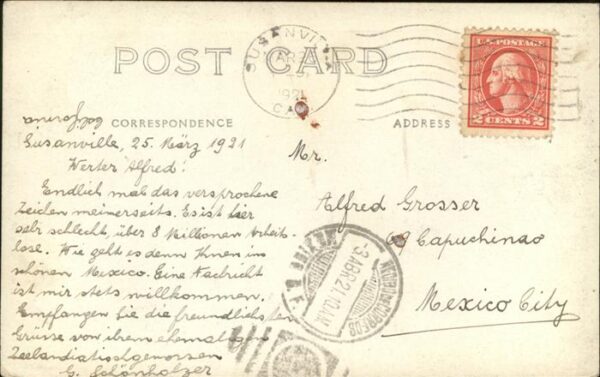 POST CARD
SUSANVILLE
MAR
1921
CAL
U.S. POSTAGE
2 CENTS 2
California
CORRESPONDENCE
ADDRESS
Susanville, 25. März 1921
Werter Alfred!
Endlich mal das versprochene
Zeichen meinerseits. Es ist hier
sehr schlecht, über 8 Millionen Arbeits-
lose. Wie geht es denn Ihnen im
schönen Mexico. Eine Nachricht
ist mir stets willkommen.
Empfangen Sie die freundlichsten
Grüsse von ihrem ehemaligen
Zeelandiatischgenossen
G. Schönholzer
Mr.
Alfred Grosser
69 Capuchinao
Mexico City
3. ABR. 21. 10 AM
MEXICO D. F.